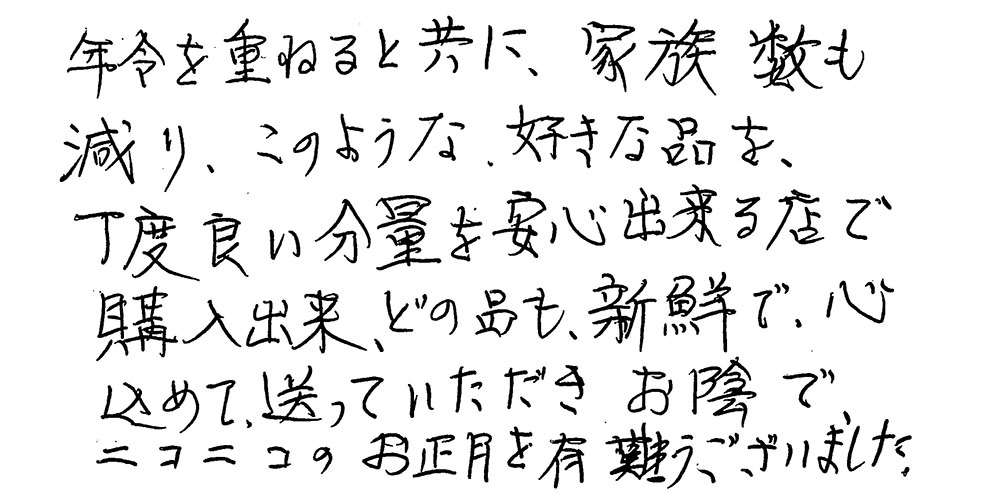 年令を重ねると共に、家族数も
減り、このような、好きな品を、
丁度良い分量を安心出来る店で
購入出来、どの品も、新鮮で、心
込めて、送っていただきお陰で、
ニコニコのお正月を有難うございました。